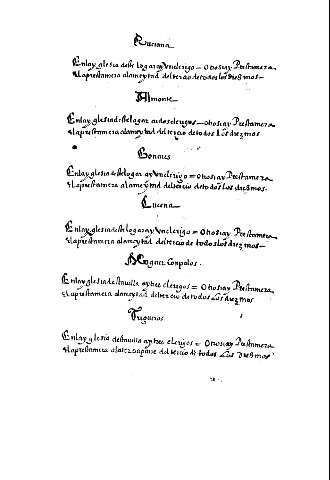 Ruciana
En la yglesia deste logar ay Un clerigo = Otrosi ay Prestamera
& la prestamera a la meytad del tercio de todos los diezmos
Almonte
En la yglesia deste logar ay dos clerigos = otrosi ay Prestamera
& la prestamera a la meytad del tercio de todos Los diezmos
Bonares
En la yglesia deste logar ay Un clerigo = otrosi ay Prestamera
& la prestamera a la meytad del tercio de todos los diezmos.
Lucena
En la yglesia deste logar ay Un clerigo = Otrosi ay Prestamera
& la prestamera a la meytad del tercio de todos los diezmos
Moguer
En la yglesia desta uilla ay tres clerigos = Otrosi ay Prestamera
& la prestamera a la meytad del tercio de todos Los diezmos
Trigueros
En la yglesia desta uilla ay tres clerigos = Otrosi ay Prestamera
& la prestamera a la terçera parte del tercio de todos Los diezmos